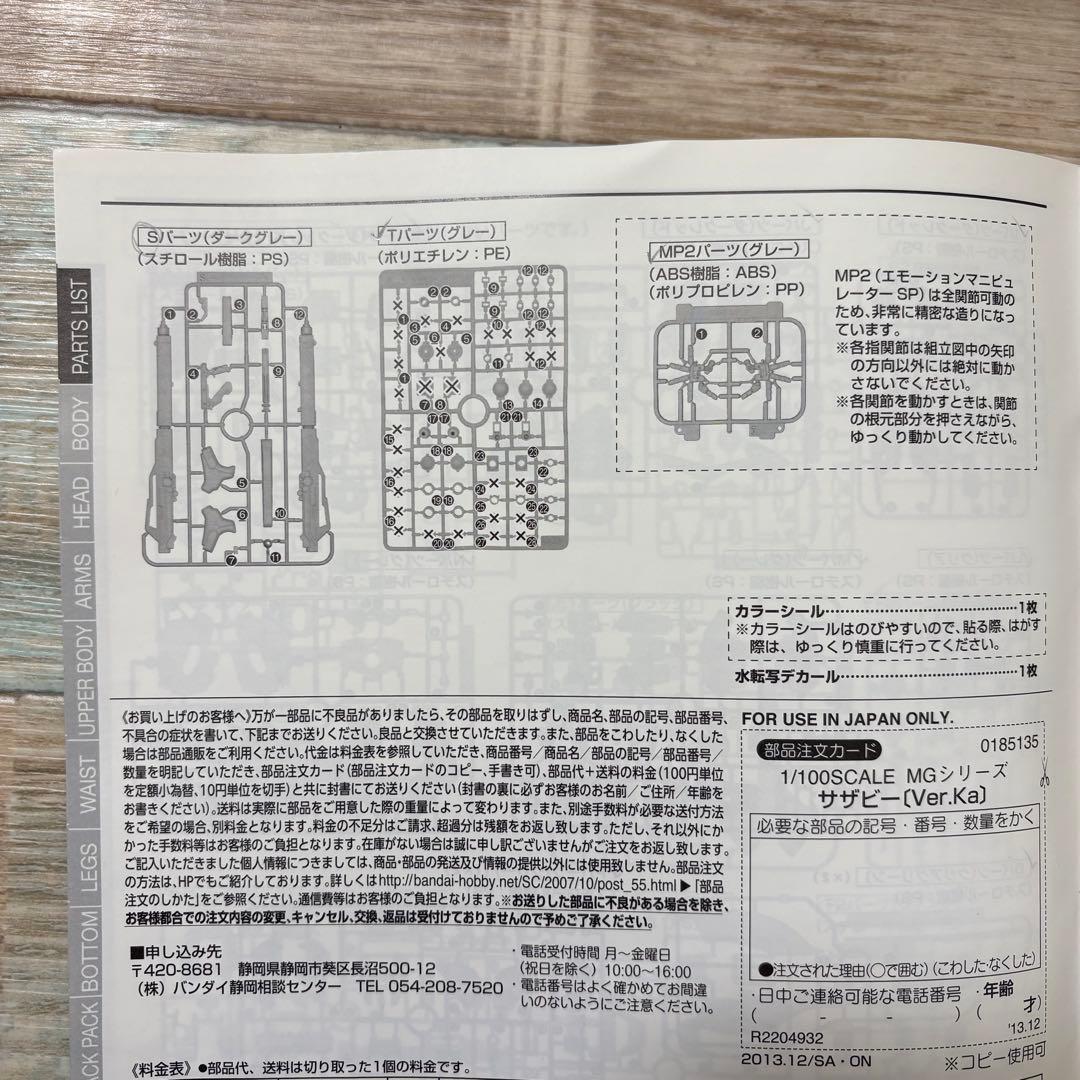 Sパーツ(ダークグレー)
(スチロール樹脂：PS)
Tパーツ(グレー)
(ポリエチレン：PE)
MP2パーツ(グレー)
(ABS樹脂：ABS)
(ポリプロピレン：PP)
MP2(エモーションマニピュ
レーターSP)は全関節可動の
ため、非常に精密な造りになっ
ています。
※各指関節は組立図中の矢印
の方向以外には絶対に動か
さないでください。
※各関節を動かすときは、関節
の根元部分を押さえながら、
ゆっくり動かしてください。
PARTS LIST
BODY
HEAD
ARMS
UPPER BODY
WAIST
LEGS
BOTTOM
ACK PACK
カラーシール…………………………………1枚
※カラーシールはのびやすいので、貼る際、はがす
際は、ゆっくり慎重に行ってください。
水転写デカール………………………………1枚
《お買い上げのお客様へ》万が一部品に不良品がありましたら、その部品を取りはずし、商品名、部品の記号、部品番号、
不具合の症状を書いて、下記までお送りください。良品と交換させていただきます。また、部品をこわしたり、なくした
場合は部品通販をご利用ください。代金は料金表を参照していただき、商品番号／商品名／部品の記号／部品番号／
数量を明記していただき、部品注文カード(部品注文カードのコピー、手書き可)、部品代＋送料の料金(100円単位
を定額小為替、10円単位を切手)と共に封書にてお送りください(封書の裏に必ずお客様のお名前／ご住所／年齢を
お書きください)。送料は実際に部品をご用意した際の重量によって変わります。また、別途手数料が必要な送付方法
をご希望の場合、別料金となります。料金の不足分はご請求、超過分は残額をお返し致します。ただし、それ以外にか
かった手数料等はお客様のご負担となります。在庫がない場合は誠に申し訳ございませんがご注文をお返し致します。
ご記入いただきました個人情報につきましては、商品・部品の発送及び情報の提供以外には使用致しません。部品注文
の方法は、HPでもご紹介しております。詳しくはhttp://bandai-hobby.net/SC/2007/10/post_55.html▶「部品
注文のしかた」をご参照ください。通信費等はお客様のご負担となります。※お送りした部品に不良がある場合を除き、
お客様都合での注文内容の変更、キャンセル、交換、返品は受付けておりませんので予めご了承ください。
■申し込み先
〒420-8681 静岡県静岡市葵区長沼500-12
(株)バンダイ静岡相談センター TEL 054-208-7520
・電話受付時間 月～金曜日
(祝日を除く) 10:00～16:00
・電話番号はよく確かめてお間違
いのないようにご注意ください。
《料金表》●部品代、送料は切り取った1個の料金です。
FOR USE IN JAPAN ONLY.
部品注文カード
0185135
1/100SCALE MGシリーズ
サザビー〔Ver.Ka〕
必要な部品の記号・番号・数量をかく
●注文された理由(○で囲む)(こわした・なくした)
・日中ご連絡可能な電話番号 ・年齢
( - - ) ( 才)
R2204932
'13.12
2013.12/SA・ON
※コピー使用可